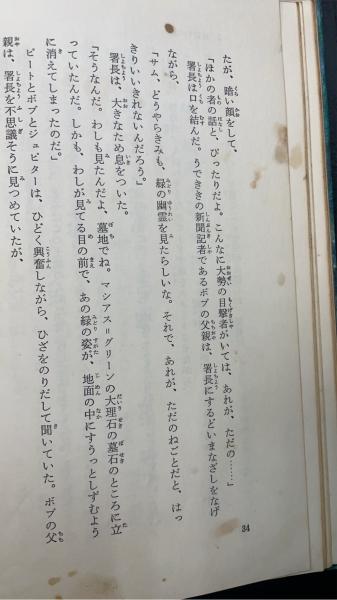 34
たが、暗い顔をして、
「ほかの者の話と、ぴったりだよ。こんなに大勢の目撃者がいては、あれが、ただの……」
署長は口を結んだ。うできの新聞記者であるボブの父親は、署長にするどいまなざしをなげ
ながら、
「サム、どうやらきみも、緑の幽霊を見たらしいな。それで、あれが、ただのねごとだと、はっ
きりいいきれないんだろう。」
署長は、大きなため息をついた。
「そうなんだ。わしも見たんだよ、墓地でね。マシアス＝グリーンの大理石の墓石のところに立
っていたんだ。しかも、わしが見てる目の前で、あの緑の姿が、地面の中にすうっとしずむよう
に消えてしまったのだ。」
ピートとボブとジュピターは、ひどく興奮しながら、ひざをのりだして聞いていた。ボブの父
親は、署長を不思議そうに見つめていたが、